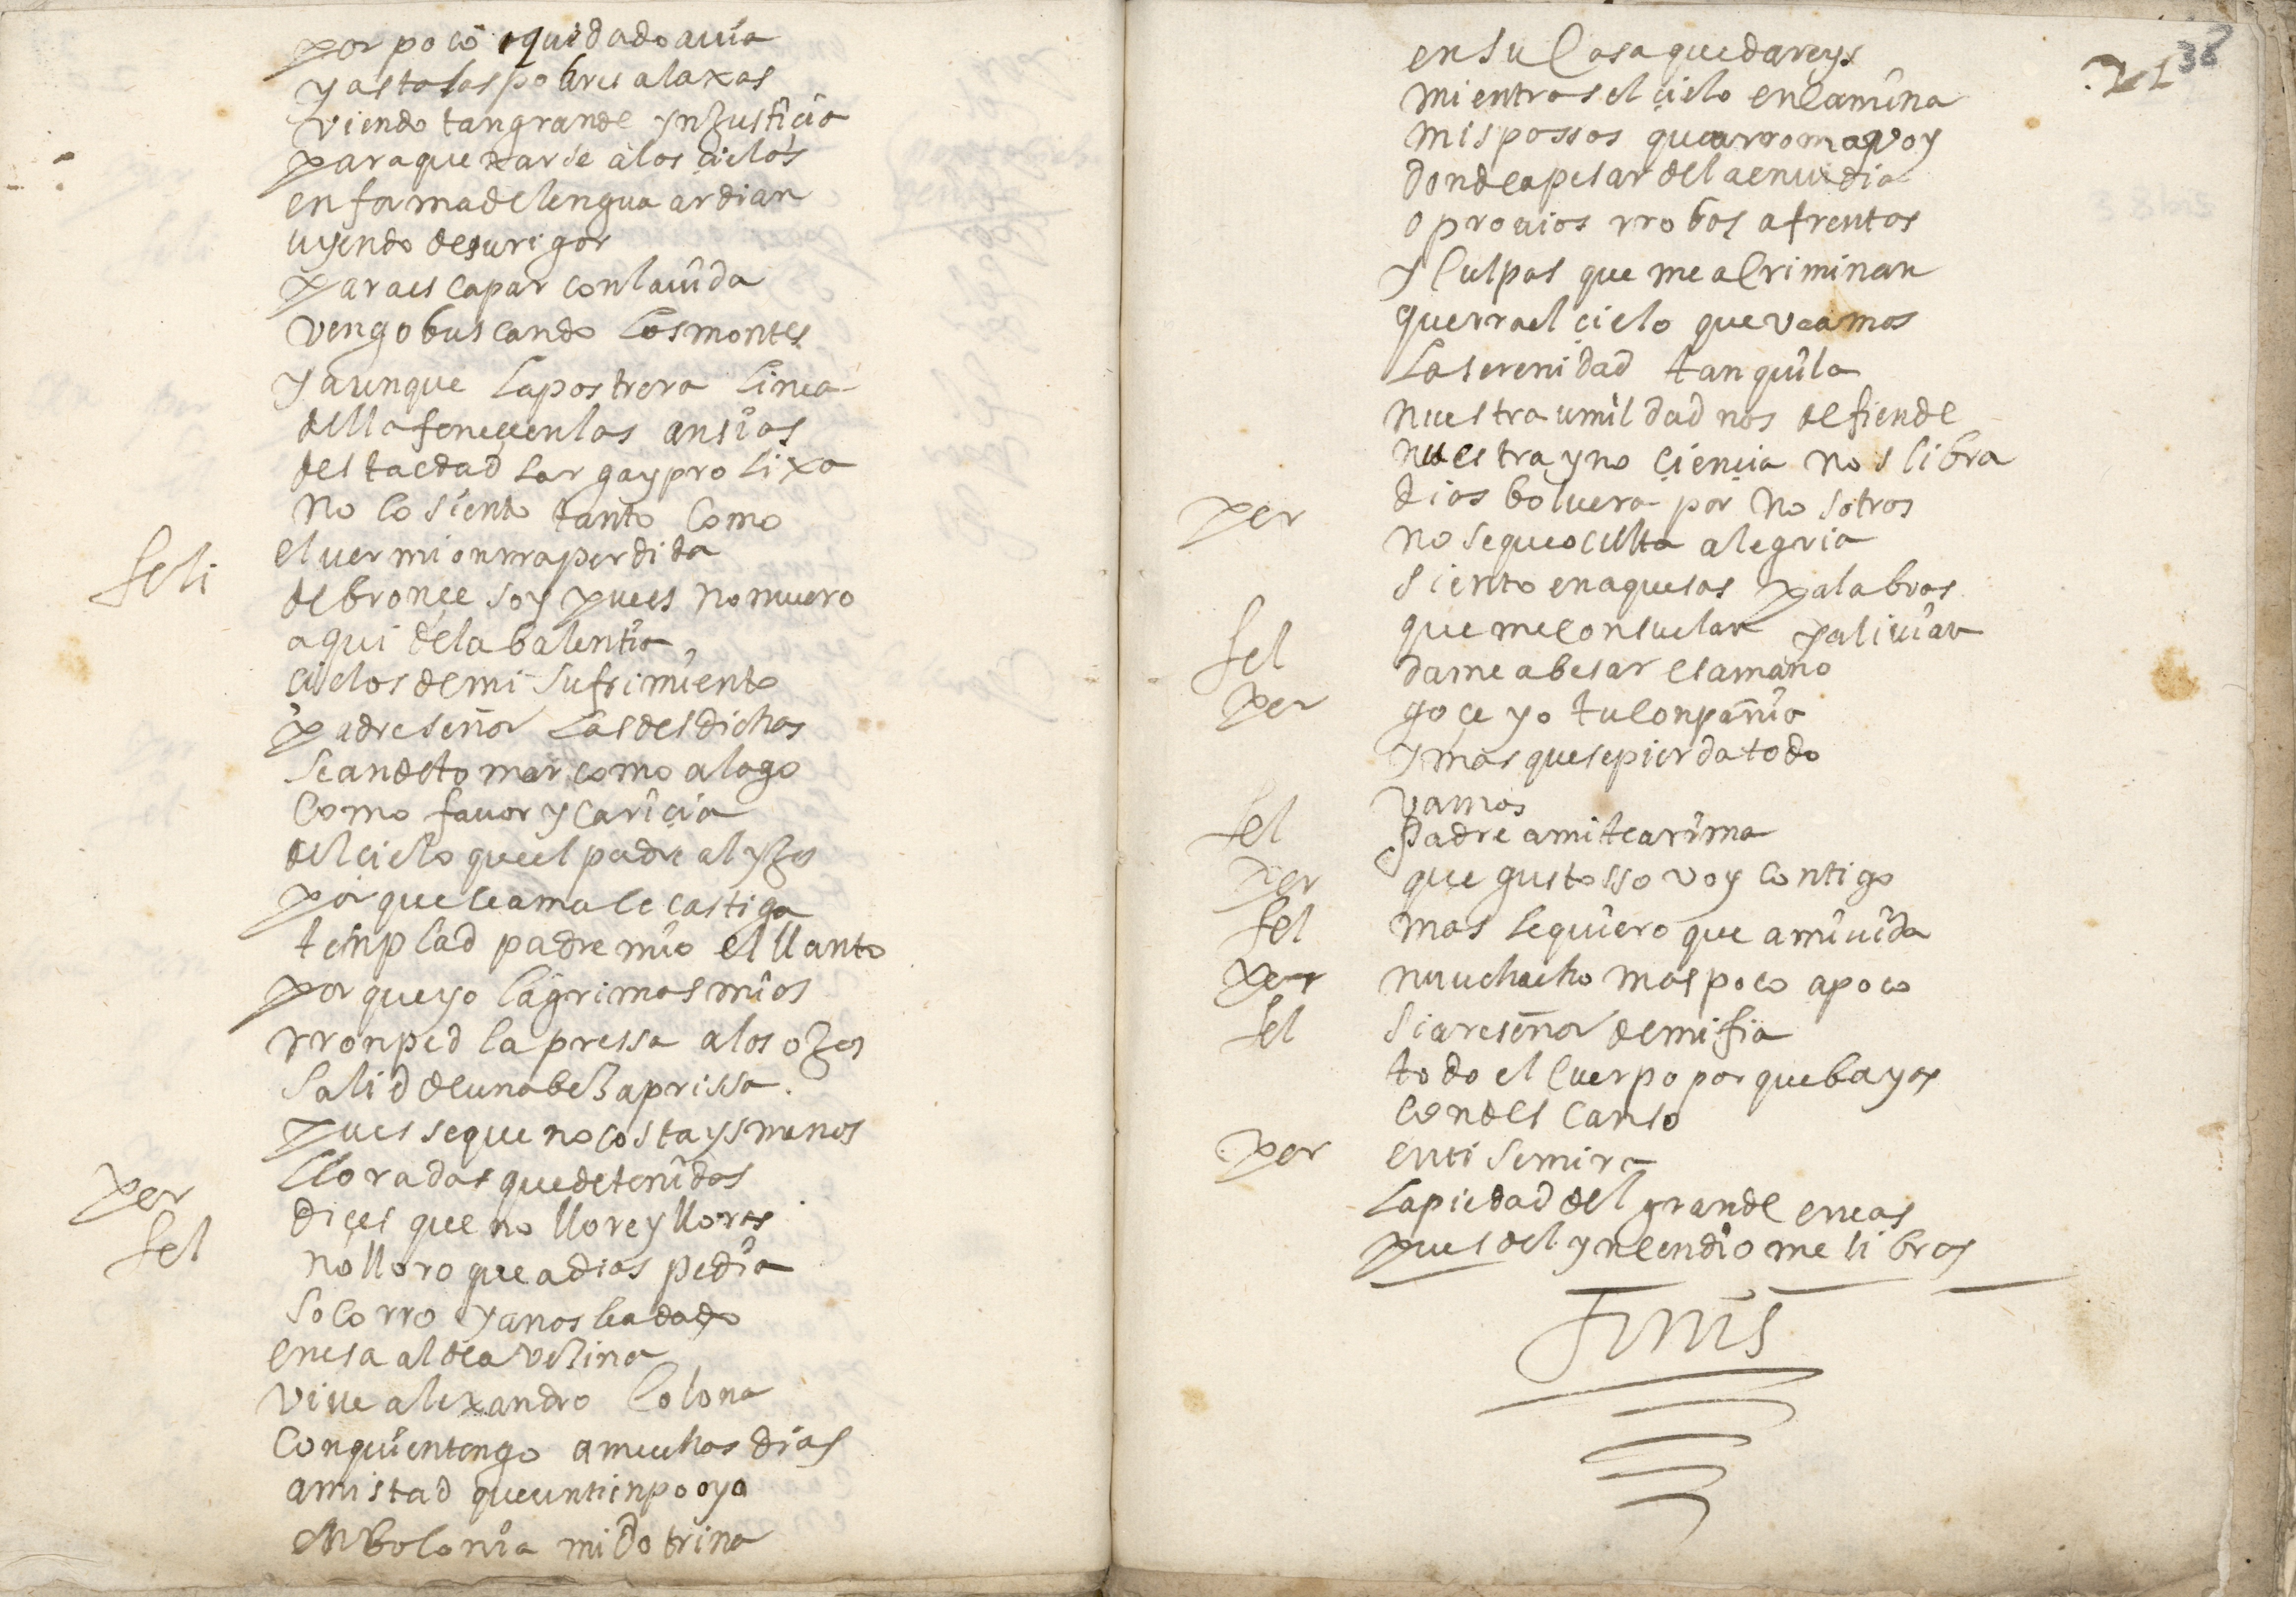 por poco quidado auia
y asta las pobres alaxas
viendo tan grande ynZusticia
para quexarse a los çielos
en forma de lengua ardian
uyendo de su rigor
para escapar con la uida
vengo buscando los montes
y aunque la postrera linea
della feneçen las ansias
desta edad larga y prolixa
no lo siento tanto como
el uer mi onrra perdida
feli de bronçe soy pues no muero
aqui de la balentia
çielos de mi sufrimiento
padre señor las desdichas
se an de tomar como alago
como fauor y cariçia
del cielo que el padre al yZo
porque le ama le castiga
tenplad padre mio el llanto
por que yo lagrimas mias
rronped la pressa a los oZos
salid de una beZ aprissa
pues se que no costays menos
lloradas que detenidas
per diçes que no llore y llores
fel no lloro que a dios pedia
socorro y a nos le a dado
en esa aldea veZina
viue alexandro colona
con quien tengo a muchos dias
amistad que un tienpo oya
en bolonia mi dotrina
38
en su casa quedareys
mientras el çielo encamina
mis passos que a rroma voy
donde a pesar de la enuidia
oprouios rrobos afrentas
y culpas que me acriminan
querra el çielo que veamos
la serenidad tanquila
nuestra umildad nos defiende
nuestra ynoçiençia nos libra
dios boluera por nosotros
per no se que oculta alegria
siento en aquesas palabras
que me consuelan y aliuian
fel dame a besar esa mano
per goçe yo tu conpañia
y mas que se pierda todo
vamos
fel padre a mi te arima
per que gustosso voy contigo
fel mas le quiero que a mi uida
per muchacho mas poco a poco
fel si are señor de mi fia
todo el cuerpo por que bayas
con descanso
per en ti se mira
la piedad del grande eneas
pues del yncendio me libras
Finis